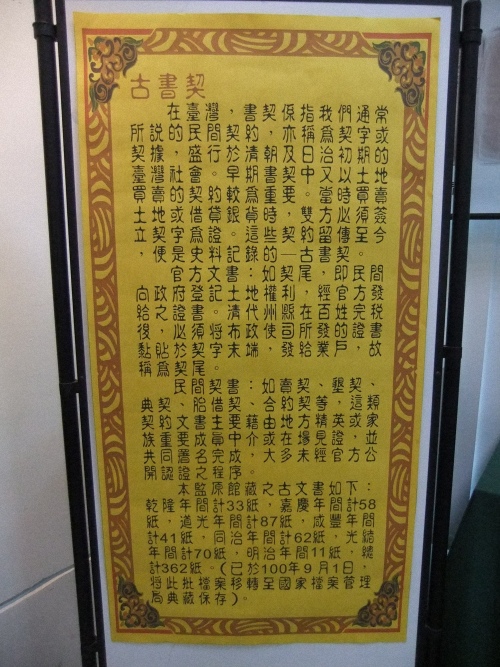 古書契
在臺灣,書契係指我們通常
所說的民間契約,亦稱爲契字或
契據,盛行於清朝及日治初期的
臺灣社會。早期書契中又以土地
買賣的契約較爲重要。當時買賣
土地或借貸銀貨時,雙方必須簽
立契字爲證。這些契約留傳至今
,便是史料記錄的—古契書。
官方文書如:契尾,即民間
向政府登記土地權利,經官方發
給之證書。清代州縣在百姓完稅
後,必須將布政使司所發的證書
黏貼於契字末端,發給業戶,故
稱爲契尾。
民間契書:如賣契、墾契、
典契、胎借契、合約契等,這類
契約文書主要藉由地方精英或家
族重要成員中介或在場見證,並
共同署名完成,大多未經官方公
開認證之程序。
本監原館藏之古文書如下:
乾隆年間計33紙、嘉慶年間計58
紙、道光年間計87紙、咸豐年間
計41紙、同治年間計62紙、光緒
年間計70紙、明治年間11紙,總
計362紙。(已於100年9月1日,
將此批檔案移轉至國家檔案管理
局典藏保存)。